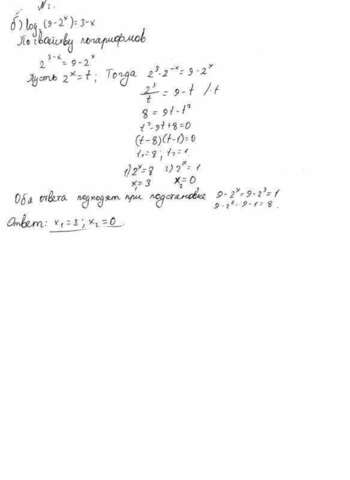 N 1.
б) log₂ (9-2ˣ)=3-x
По свойству логарифмов
2³⁻ˣ = 9-2ˣ
Пусть 2ˣ = t; Тогда 2³·2⁻ˣ = 9-2ˣ
2³/t = 9-t /·t
8 = 9t-t²
t²-9t+8=0
(t-8)(t-1)=0
t₁=8; t₂=1
1) 2ˣ=8 2) 2ˣ=1
x₁=3 x₂=0
Оба ответа подходят при подстановке 9-2ˣ=9-2³=1
9-2ˣ=9-1=8.
Ответ: x₁=3; x₂=0